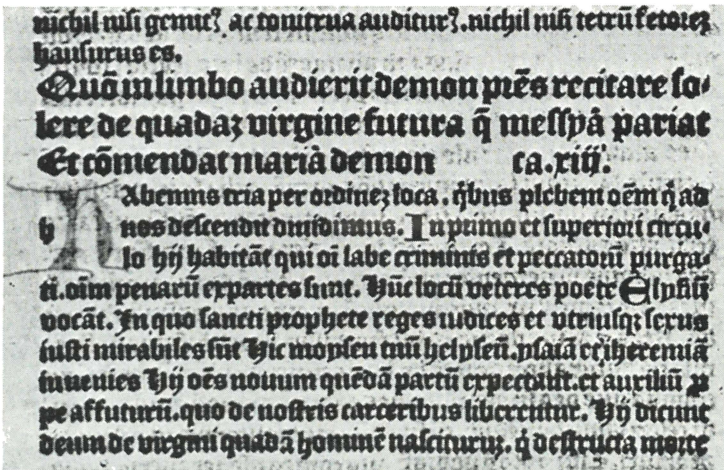 nichil nisi gemitꝰ ac tonitrua auditurꝰ. nichil nisi tetrū fetorez
hausurus es.
Quō in limbo audierit demon pr̄es recitare so⸗
lere de quadaz virgine futura q̄ messyā pariat
Et cōmendat mariā demon ca. xiij.
h Abemus tria per ordinez loca. q̇bus plebem oēm q̄ ad
nos descendit diuidimus. In primo et superiori circu⸗
lo hij habitāt qui oī labe criminis et peccatorū purga⸗
ti. oīm penarū expertes sunt. Hūc locū veteres poete Elysiū
vocāt. In quo sancti prophete reges iudices et vtriusqꝫ sexus
iusti mirabiles sūt Hic moysen tuū helyseū. ysaiā et iheremiā
inuenies Hij oēs nouum quēdā partū expectāt. et auxiliū ꝓ
pe affuturū. quo de nostris carceribus liberentur. Hij dicunt
deum de virgini quadā hominē nasciturū. q̇ destructa morte